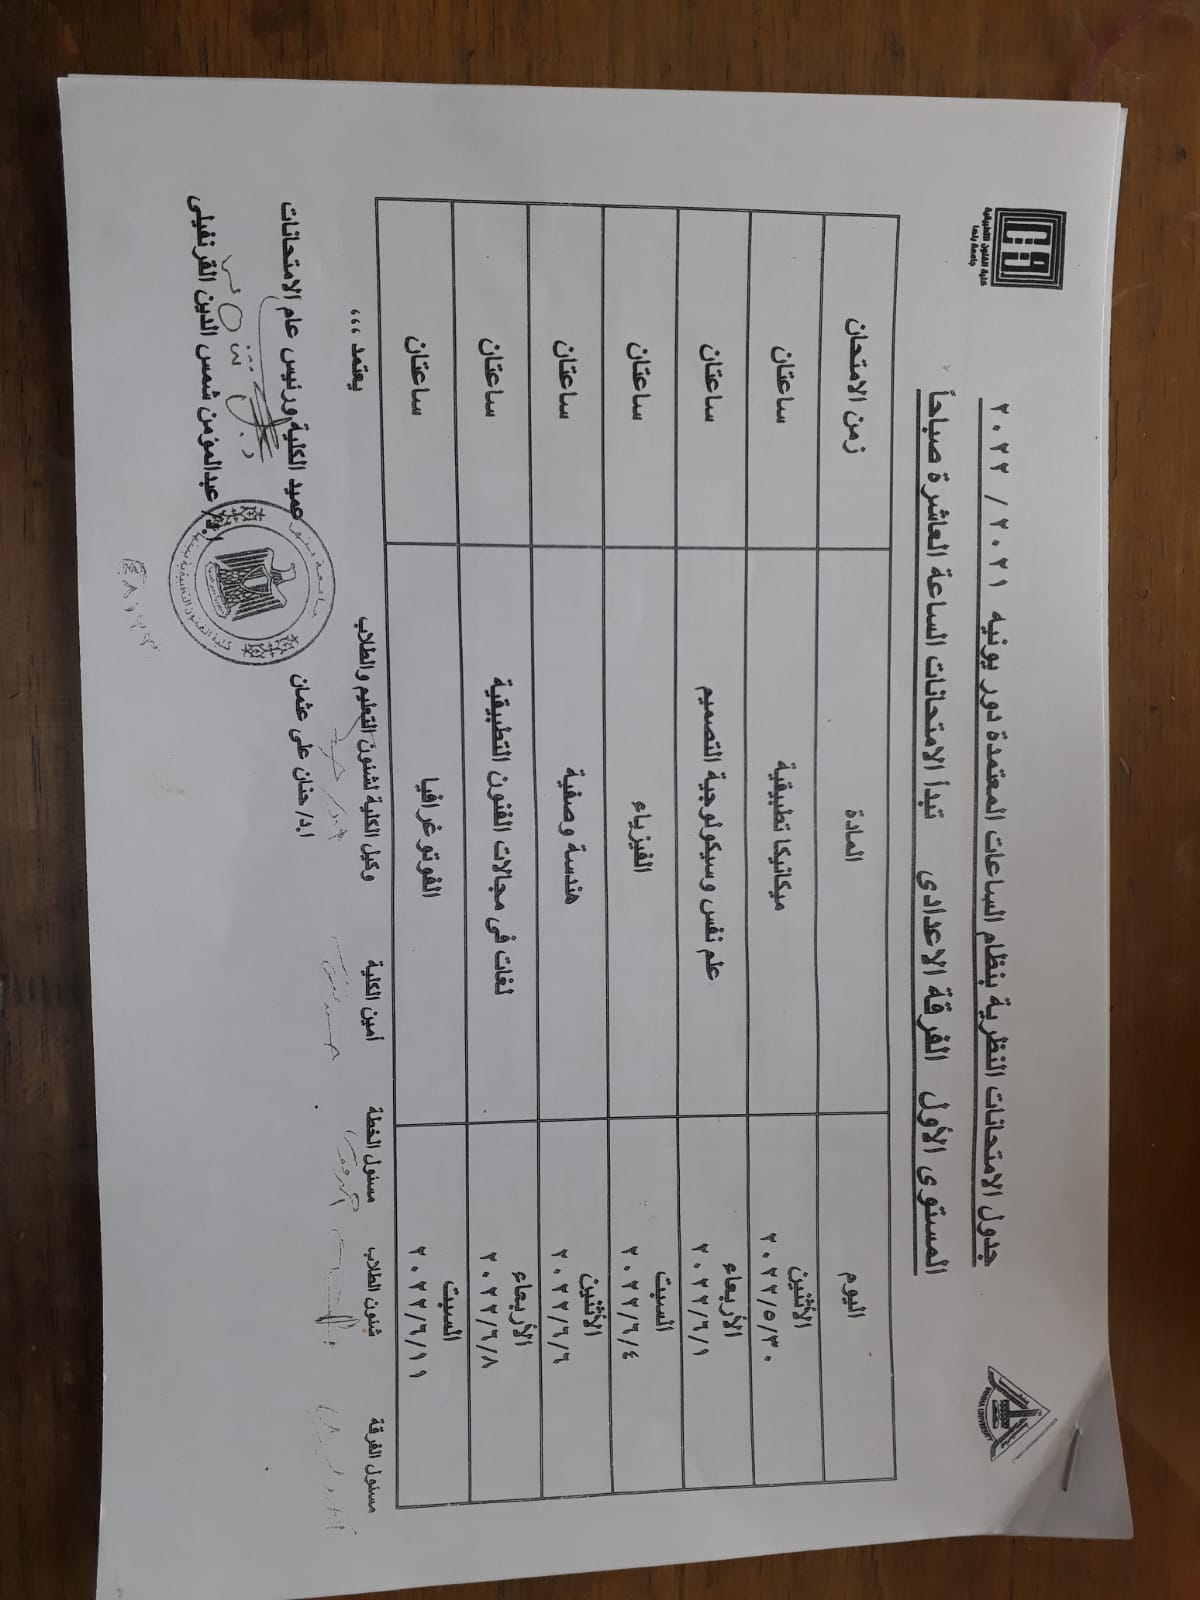 كلية الفنون التطبيقية
جامعة بنها
BENHA UNIVERSITY
جدول الامتحانات النظرية بنظام الساعات المعتمدة دور يونيه ٢٠٢١ / ٢٠٢٢
المستوى الأول الفرقة الاعدادى تبدأ الامتحانات الساعة العاشرة صباحاً
اليوم المادة زمن الامتحان
الأثنين ٢٠٢٢/٥/٣٠ ميكانيكا تطبيقية ساعتان
الأربعاء ٢٠٢٢/٦/١ علم نفس وسيكولوجية التصميم ساعتان
السبت ٢٠٢٢/٦/٤ الفيزياء ساعتان
الأثنين ٢٠٢٢/٦/٦ هندسة وصفية ساعتان
الأربعاء ٢٠٢٢/٦/٨ لغات فى مجالات الفنون التطبيقية ساعتان
السبت ٢٠٢٢/٦/١١ الفوتوغرافيا ساعتان
مسئول الفرقة شئون الطلاب مسئول الخطة أمين الكلية وكيل الكلية لشئون التعليم والطلاب يعتمد ،،،
ا.د/ حنان على عثمان عميد الكلية ورئيس عام الامتحانات
ا.د/ عبدالمؤمن شمس الدين القرنفيلى